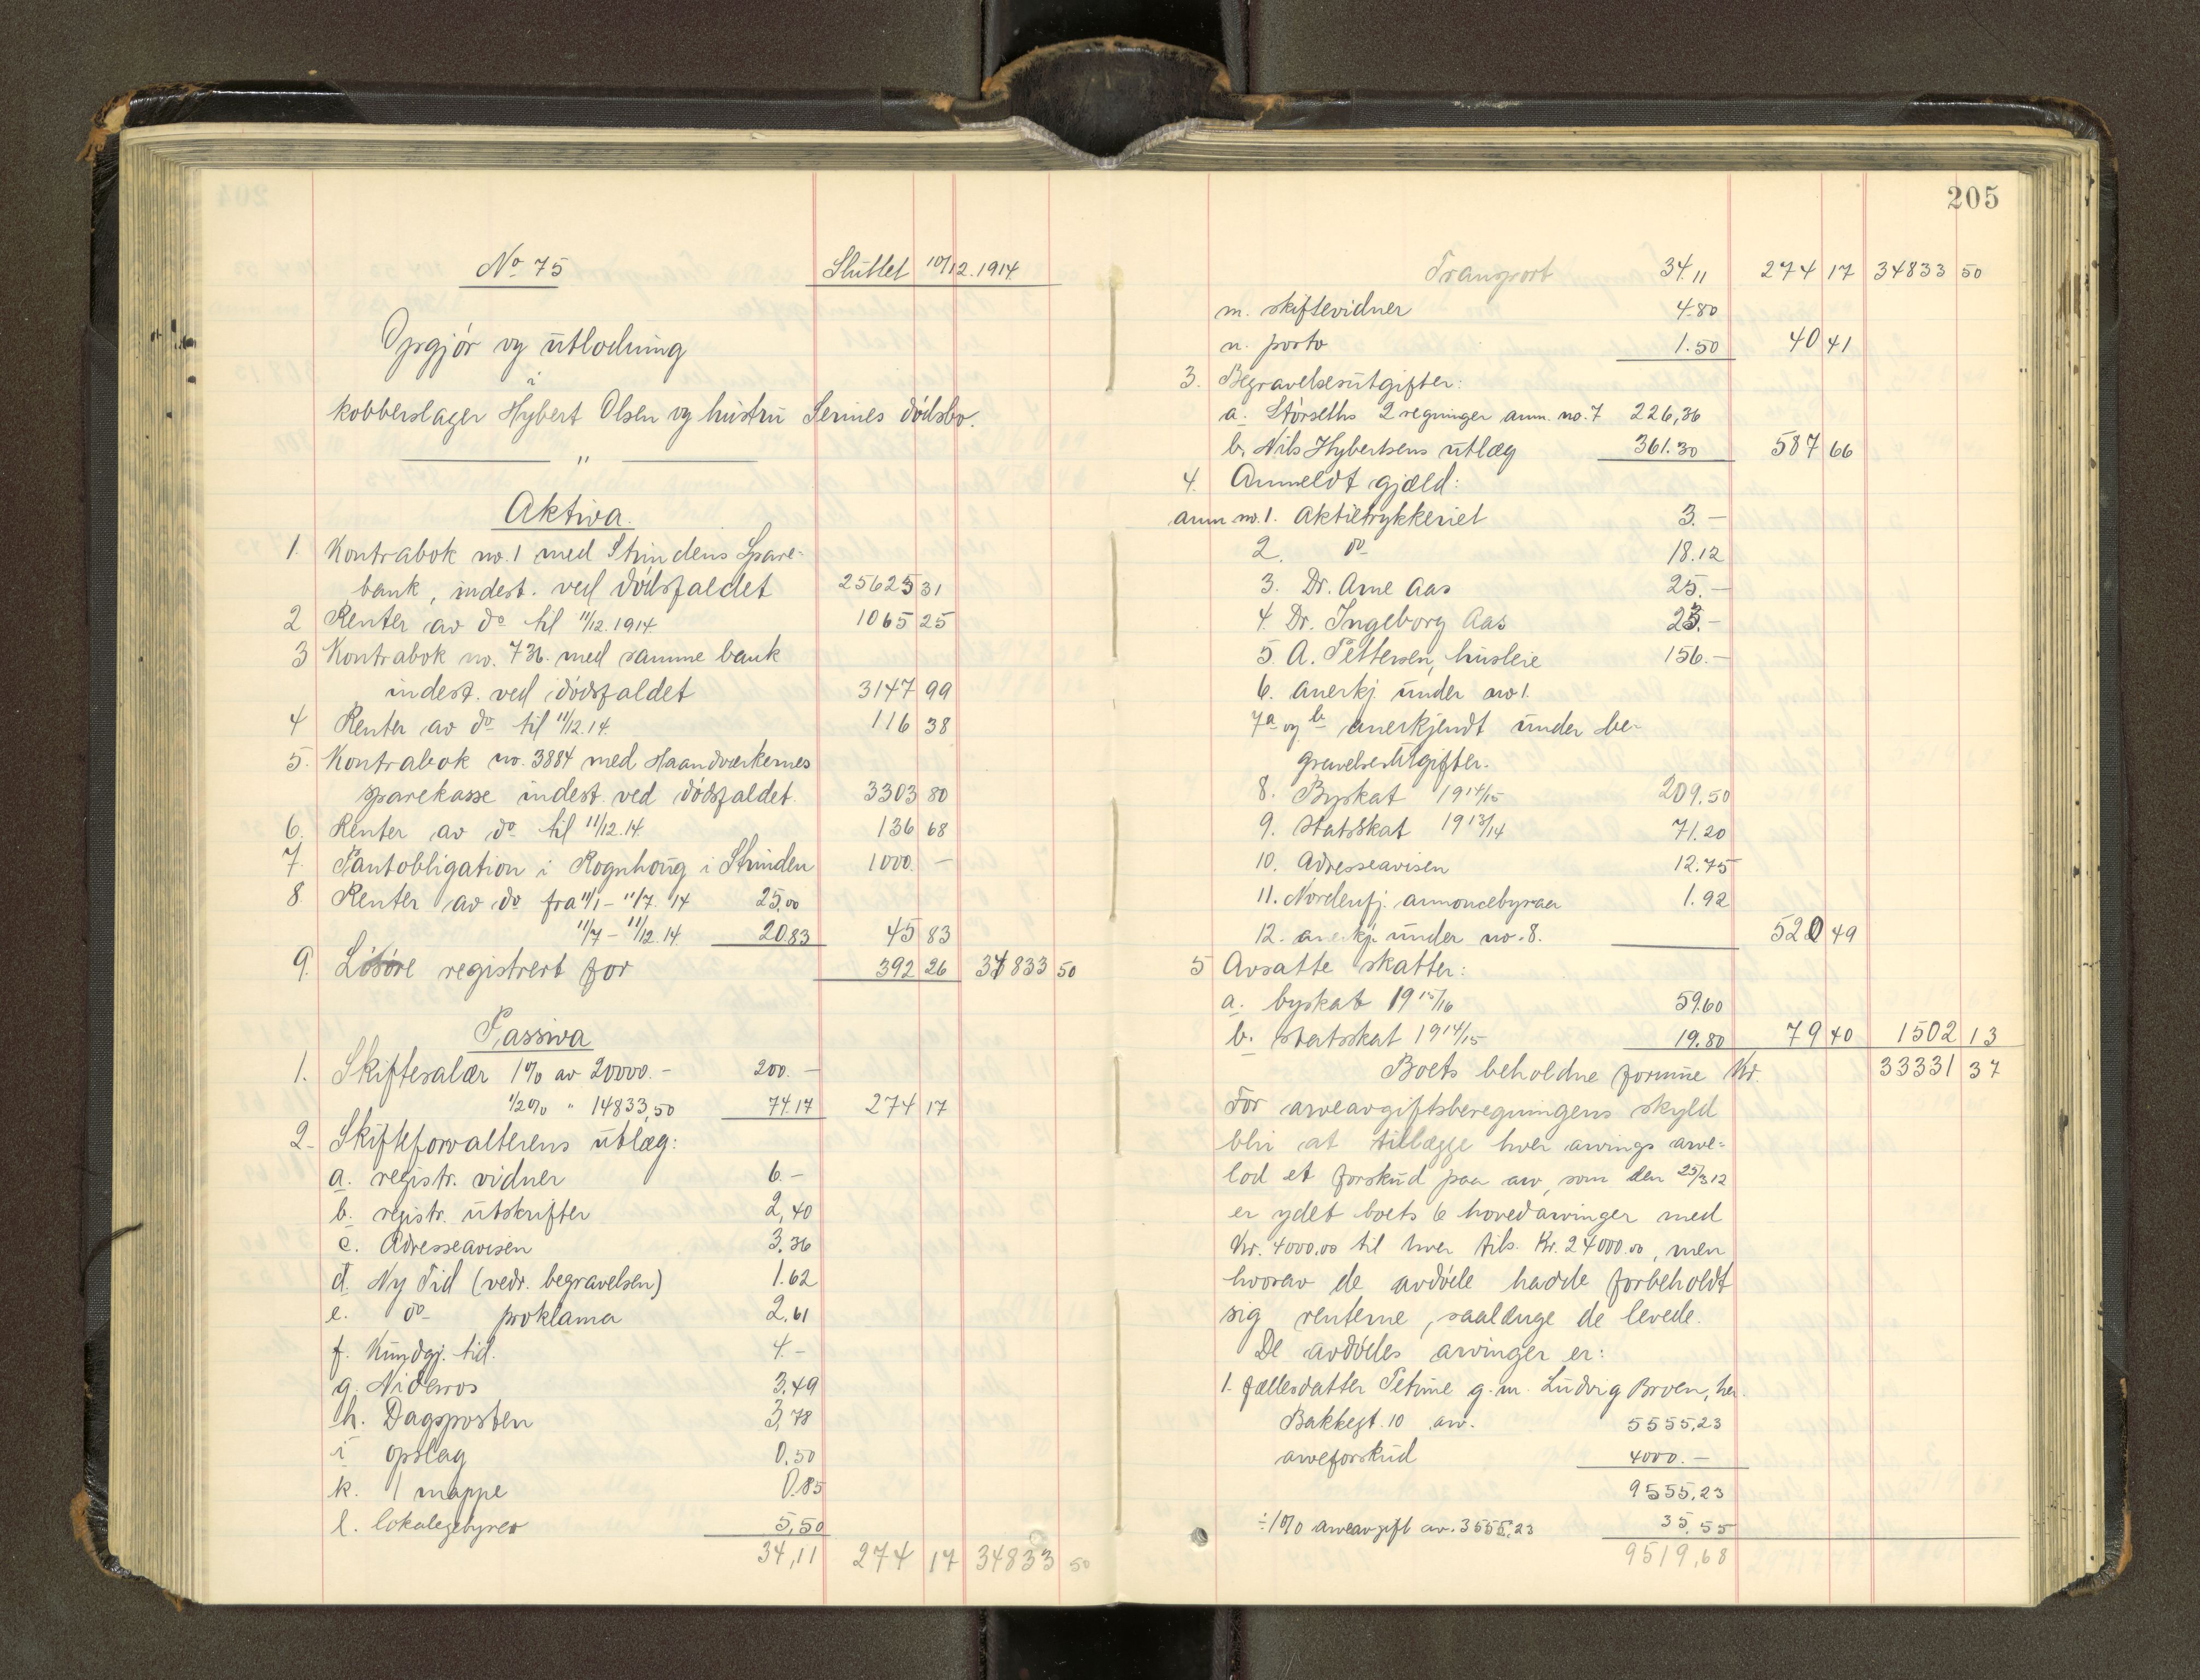 No 75 Sluttet 10/12.1914.
Opgjør og utlodning
i
kobberslager Hybert Olsen og hustru Serines dødsbo.
"
Aktiva.
1. Kontrabok no. 1 med Strindens Spare-
bank, indest. ved dødsfaldet 25625 31
2 Renter av do til 11/12.1914. 1065 25
3 Kontrabok no. 736. med samme bank
indest. ved dødsfaldet 3147 99
4 Renter av do til 11/12.14. 116 38
5. Kontrabok no. 3884 med Haandværkernes
sparekasse indest. ved dødsfaldet. 3303 80
6. Renter av do til 11/12.14. 136 68
7. Pantobligation i Rognhoug i Strinden 1000. —
8 Renter av do fra 11/1 - 11/7. 14 25,00
11/7 - 11/12.14 20.83 45 83
9. Løsøre registrert for 392 26 34833 50
Passiva
1. Skiftesalær 1% av 20000.- 200. —
1/2% " 14833,50 74.17 274 17
2- Skifteforvalterens utlæg:
a. registr. vidner 6.-
b. registr. utskrifter 2,40
c. Adresseavisen 3.36
d. Ny Tid (vedr. begravelsen) 1.62
e. do- proklama 2.61
f. Kundgj. tid. 4.-
g. Nidaros 3.49
h. Dagsposten 3,78
i opslag 0.50
k. 1 mappe 0.85
l. lokalegebyrer 5,50
34,11 274 17 34833 50
205
Transport 34.11 274 17 34833 50
m. skiftevidner 4.80
n. porto 1.50 40 41
3. Begravelsesutgifter:
a. Størseths 2 regninger anm. no. 7 226,36
b. Nils Hybertsens utlæg 361.30 587 66
4. Anmeldt gjæld:
anm no. 1. Aktietrykkeriet 3.—
2. do- 18.12
3. Dr. Arne Aas 25.—
4. Dr. Ingeborg Aas 23.-
5. A. Pettersen, husleie 156.-
6. anerkj. under no 1.
7a og b anerkjendt under be-
gravelsesutgifter.
8. Byskat 1914/15 209.50
9. statsskat 1913/14 71.20
10. Adresseavisen 12.75
11. Nordenfj. annoncebyraa 1.92
12. anerkj. under no. 8. 520 49
5 Avsatte skatter:
a. byskat 1915/16 59.60
b. statsskat 1914/15 19.80 79 40 1502 13
Boets beholdne formue Kr. 33331 37
For arveavgiftsberegningens skyld
blir at tillægge hver arvings arve-
lod et forskud paa arv, som den 25/3 12
er ydet boets 6 hovedarvinger med
Kr. 4000,00 til hver tils. Kr. 24000.00, men
hvorav de avdøde hadde forbeholdt
sig renterne, saalænge de levede.
De avdødes arvinger er:
1. fællesdatter Petrine g. m. Ludvig Broen, her.
Bakkegt. 10 arv. 5555,23
arveforskud 4000.—
9555,23
÷ 1% arveavgift av. 3555,23 35,55
9519,68